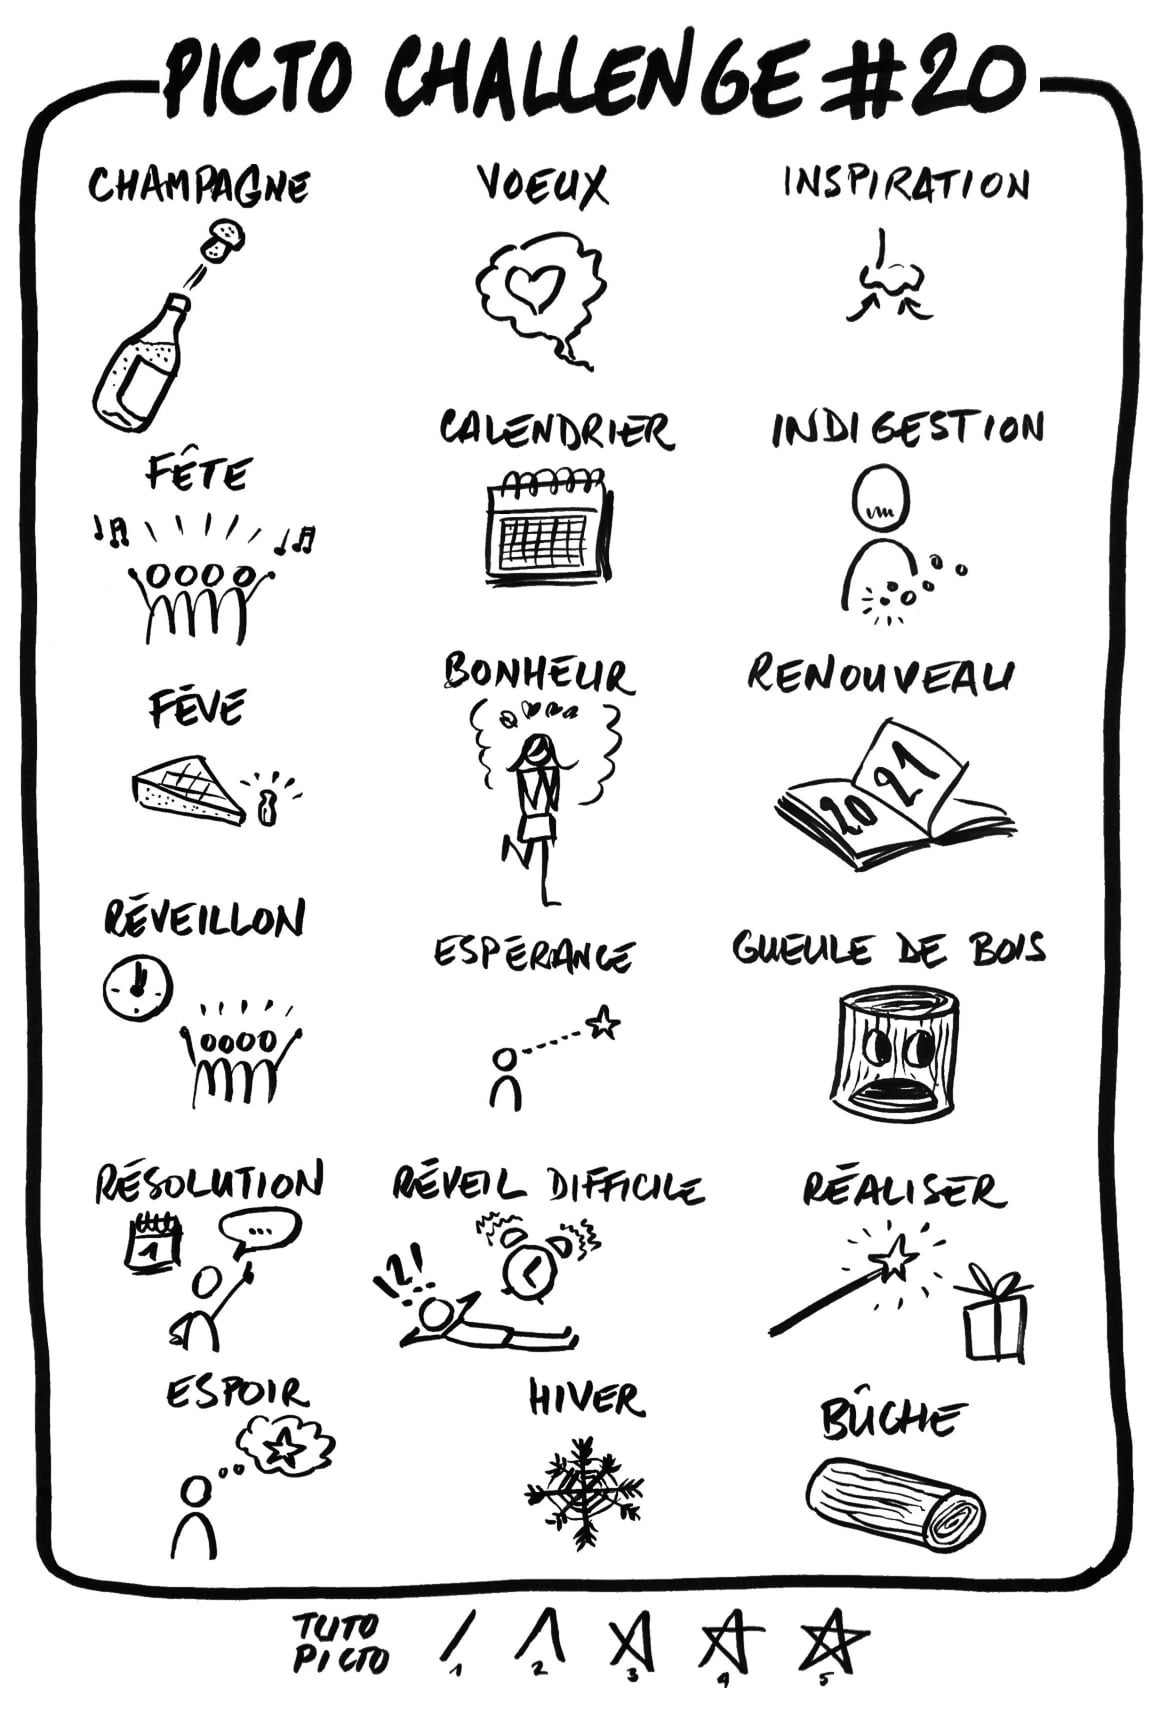 PICTO CHALLENGE #20
CHAMPAGNE
VOEUX
INSPIRATION
FÊTE
CALENDRIER
INDIGESTION
FÈVE
BONHEUR
RENOUVEAU
20 21
RÉVEILLON
ESPÉRANCE
GUEULE DE BOIS
RÉSOLUTION
1
...
RÉVEIL DIFFICILE
!?!
RÉALISER
ESPOIR
HIVER
BÛCHE
TUTO
PICTO
1 2 3 4 5